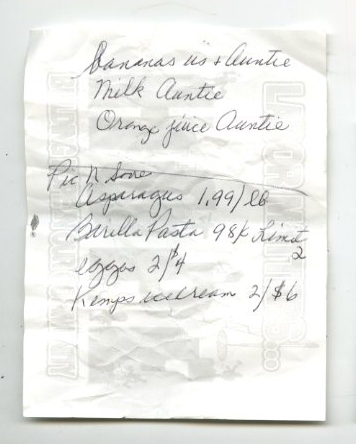 Bananas us + Auntie
Milk Auntie
Orange juice Auntie
Pic N Save
Asparagus 1.99/lb
Barilla Pasta 98¢ Limit
2
eggos 2/$4
Kemps icecream 2/$6